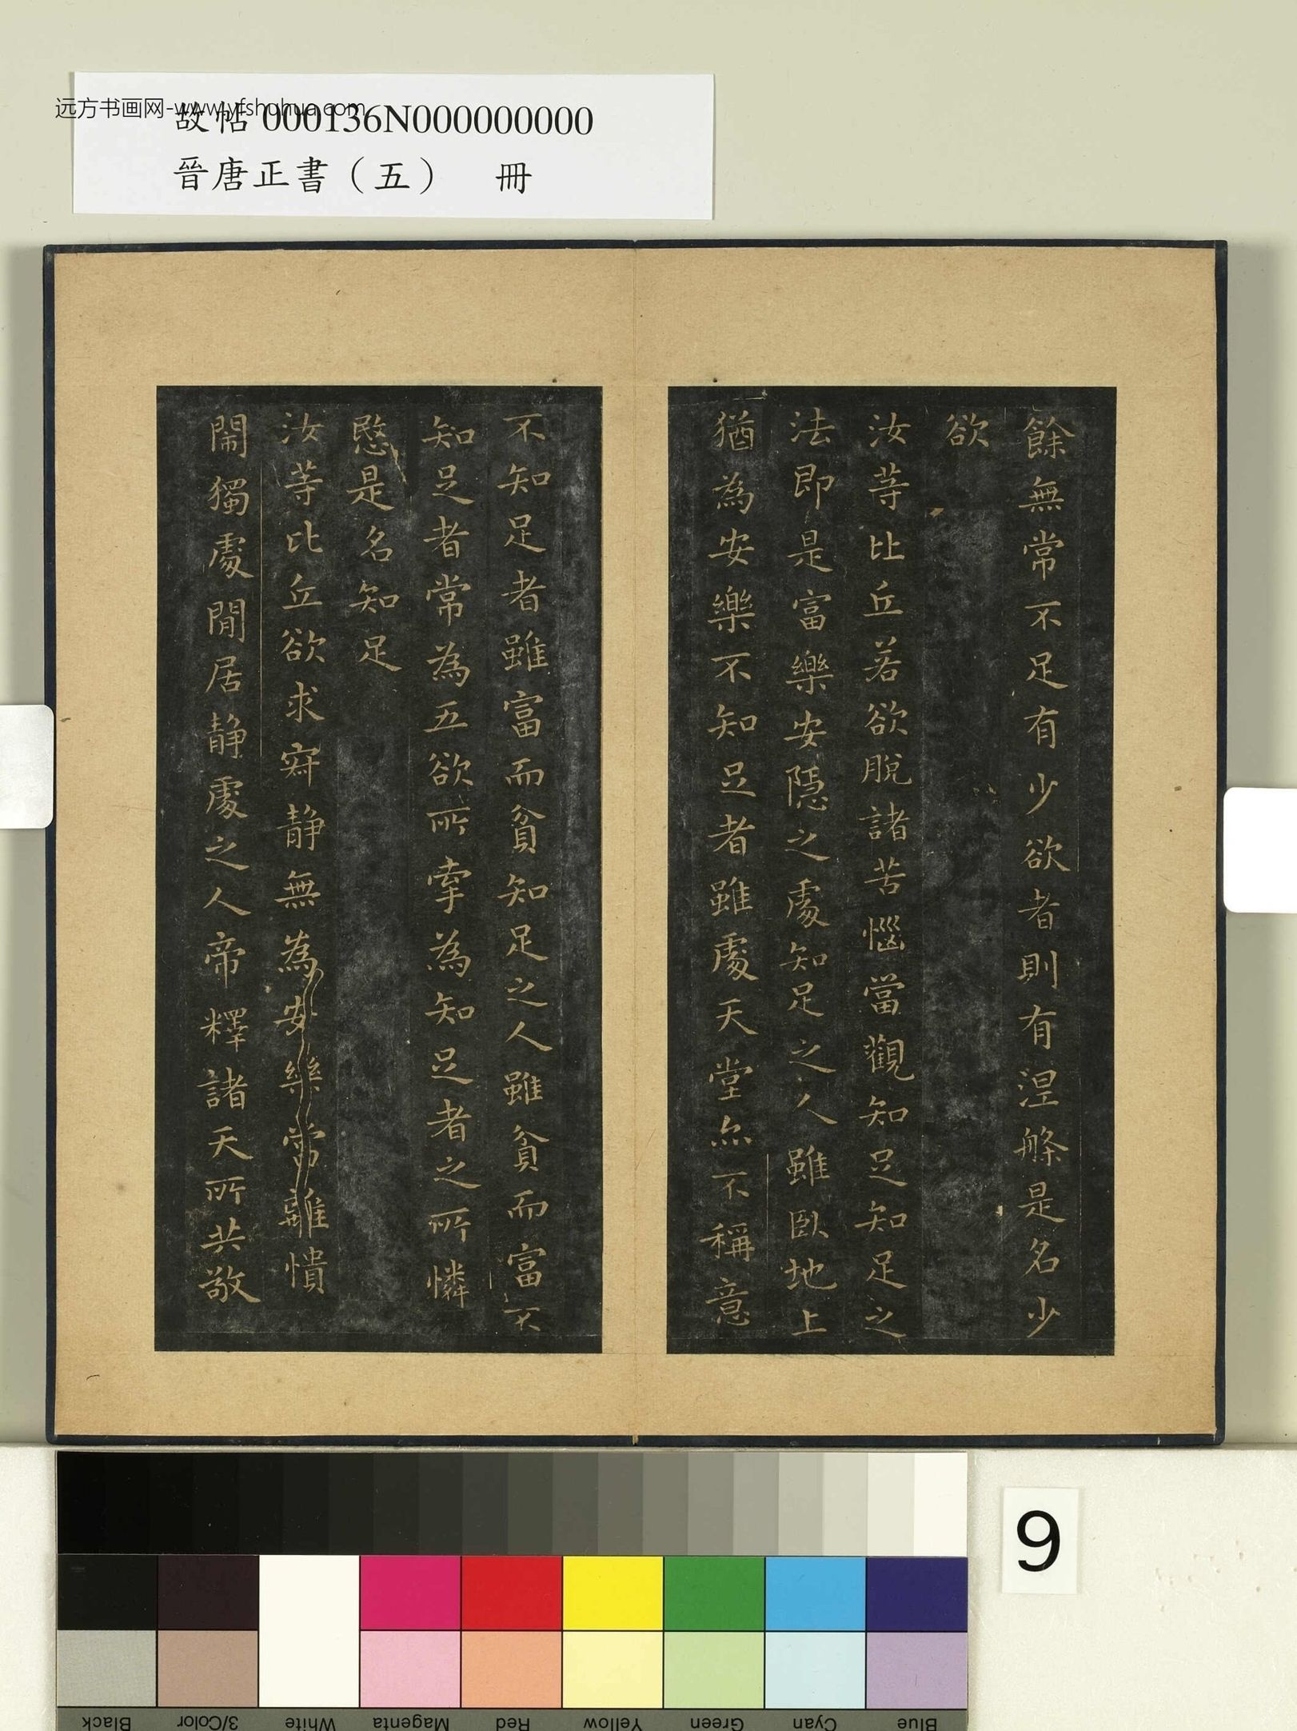 远方书画网-www.yfshuhua.com
故帖 000136N000000000
晉唐正書（五） 冊
餘無常不足有少欲者則有涅槃是名少
欲
汝等比丘若欲脫諸苦惱當觀知足知足之
法即是富樂安隱之處知足之人雖臥地上
猶為安樂不知足者雖處天堂亦不稱意
不知足者雖富而貧知足之人雖貧而富不
知足者常為五欲所牽為知足者之所憐
愍是名知足
汝等比丘欲求寂静無為安樂當離憒
閙獨處閒居静處之人帝釋諸天所共敬
9
Black
3/Color
White
Magenta
Red
Yellow
Green
Cyan
Blue